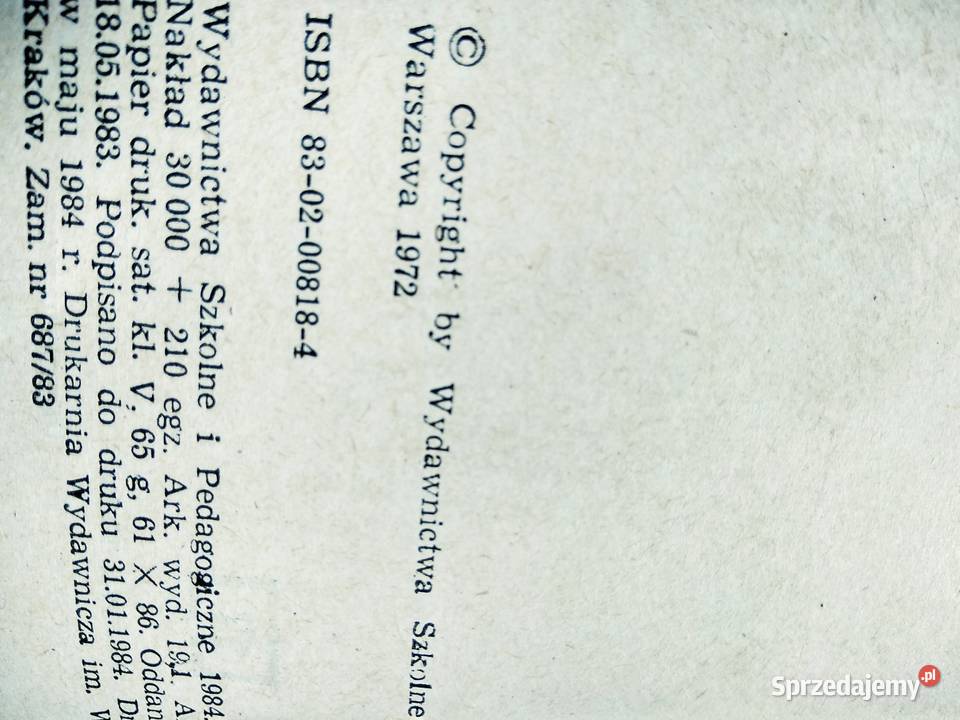 © Copyright by Wydawnictwa Szkolne
Warszawa 1972
ISBN 83-02-00818-4
Wydawnictwa Szkolne i Pedagogiczne 1984.
Nakład 30 000 + 210 egz. Ark. wyd. 19,1. A.
Papier druk. sat. kl. V, 65 g, 61 X 86. Oddan
18.05.1983. Podpisano do druku 31.01.1984. Dr
w maju 1984 r. Drukarnia Wydawnicza im. W
Kraków. Zam. nr 687/83
Sprzedajemy.pl